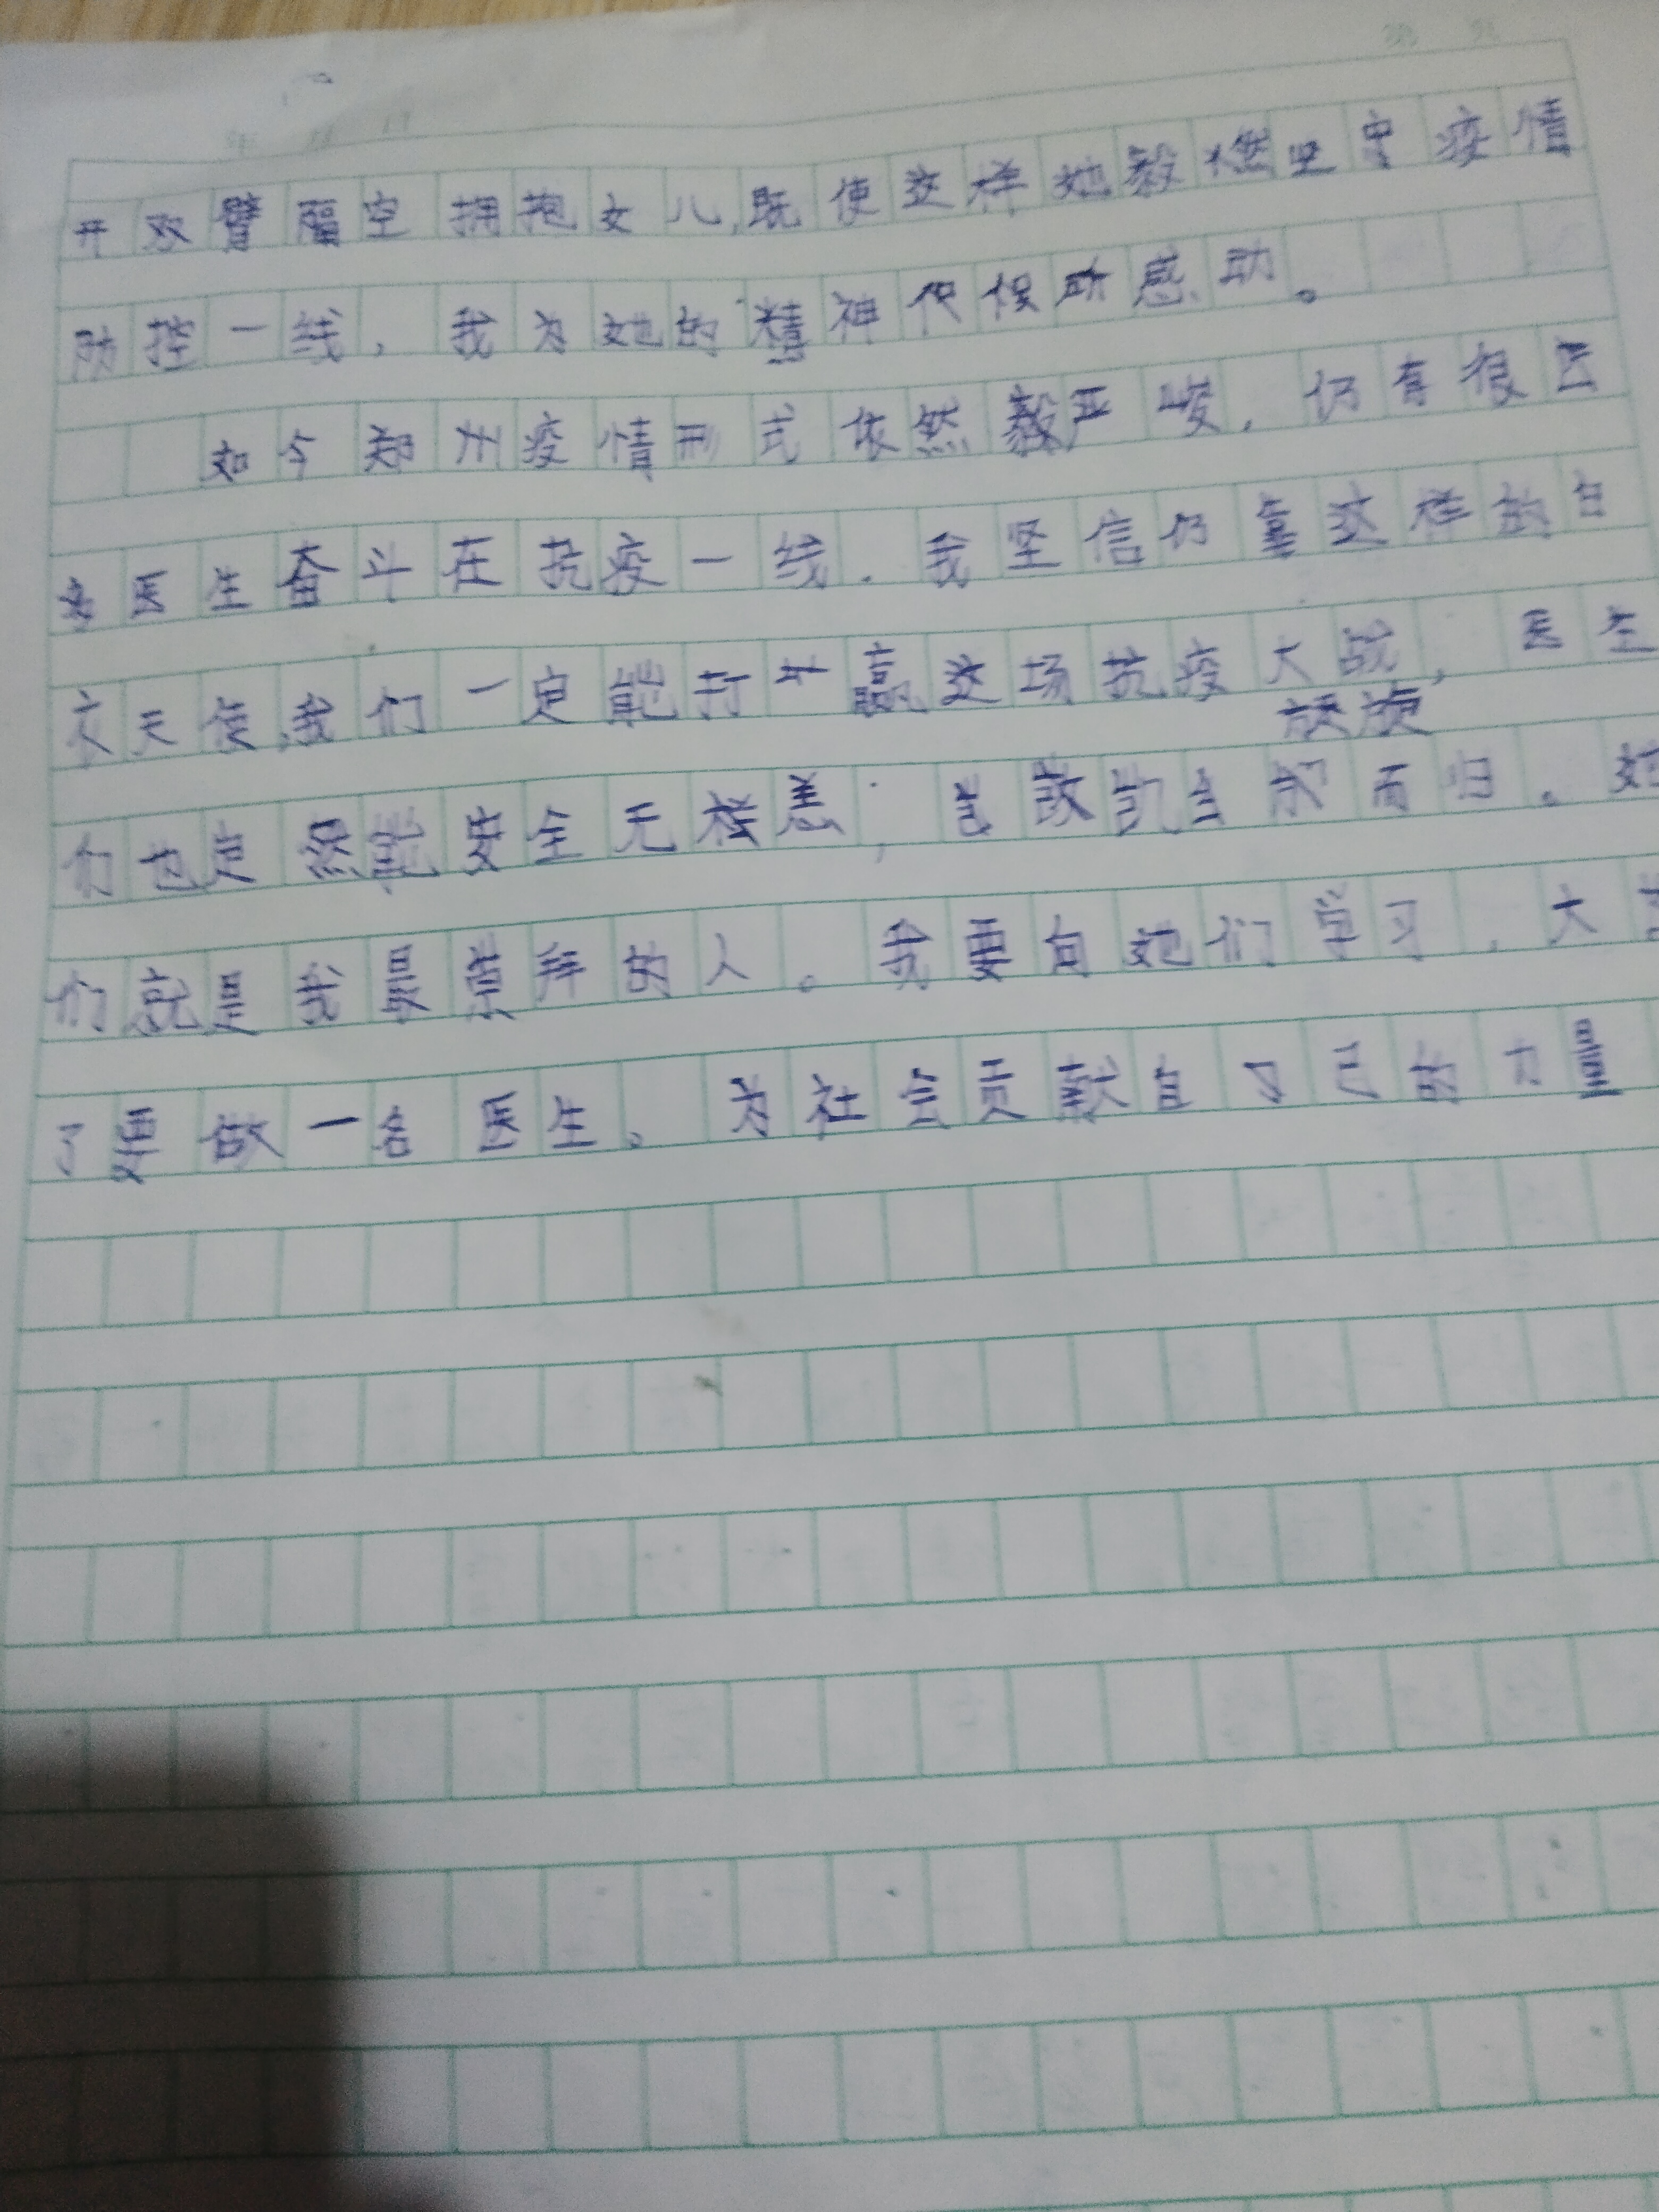 开双臂隔空拥抱女儿,既使这样她毅然坚守疫情
防控一线，我为她的精神所感动。
如今郑州疫情形式依然严峻，仍有很
多医生奋斗在抗疫一线．我坚信仍靠这样的白
衣天使,我们一定能打赢这场抗疫大战，医生
旋
们也定能安全无恙，凯而归。她
们就是我最崇拜的人。我要向她们学习，大
了要做一名医生。为社会贡献自己的力量